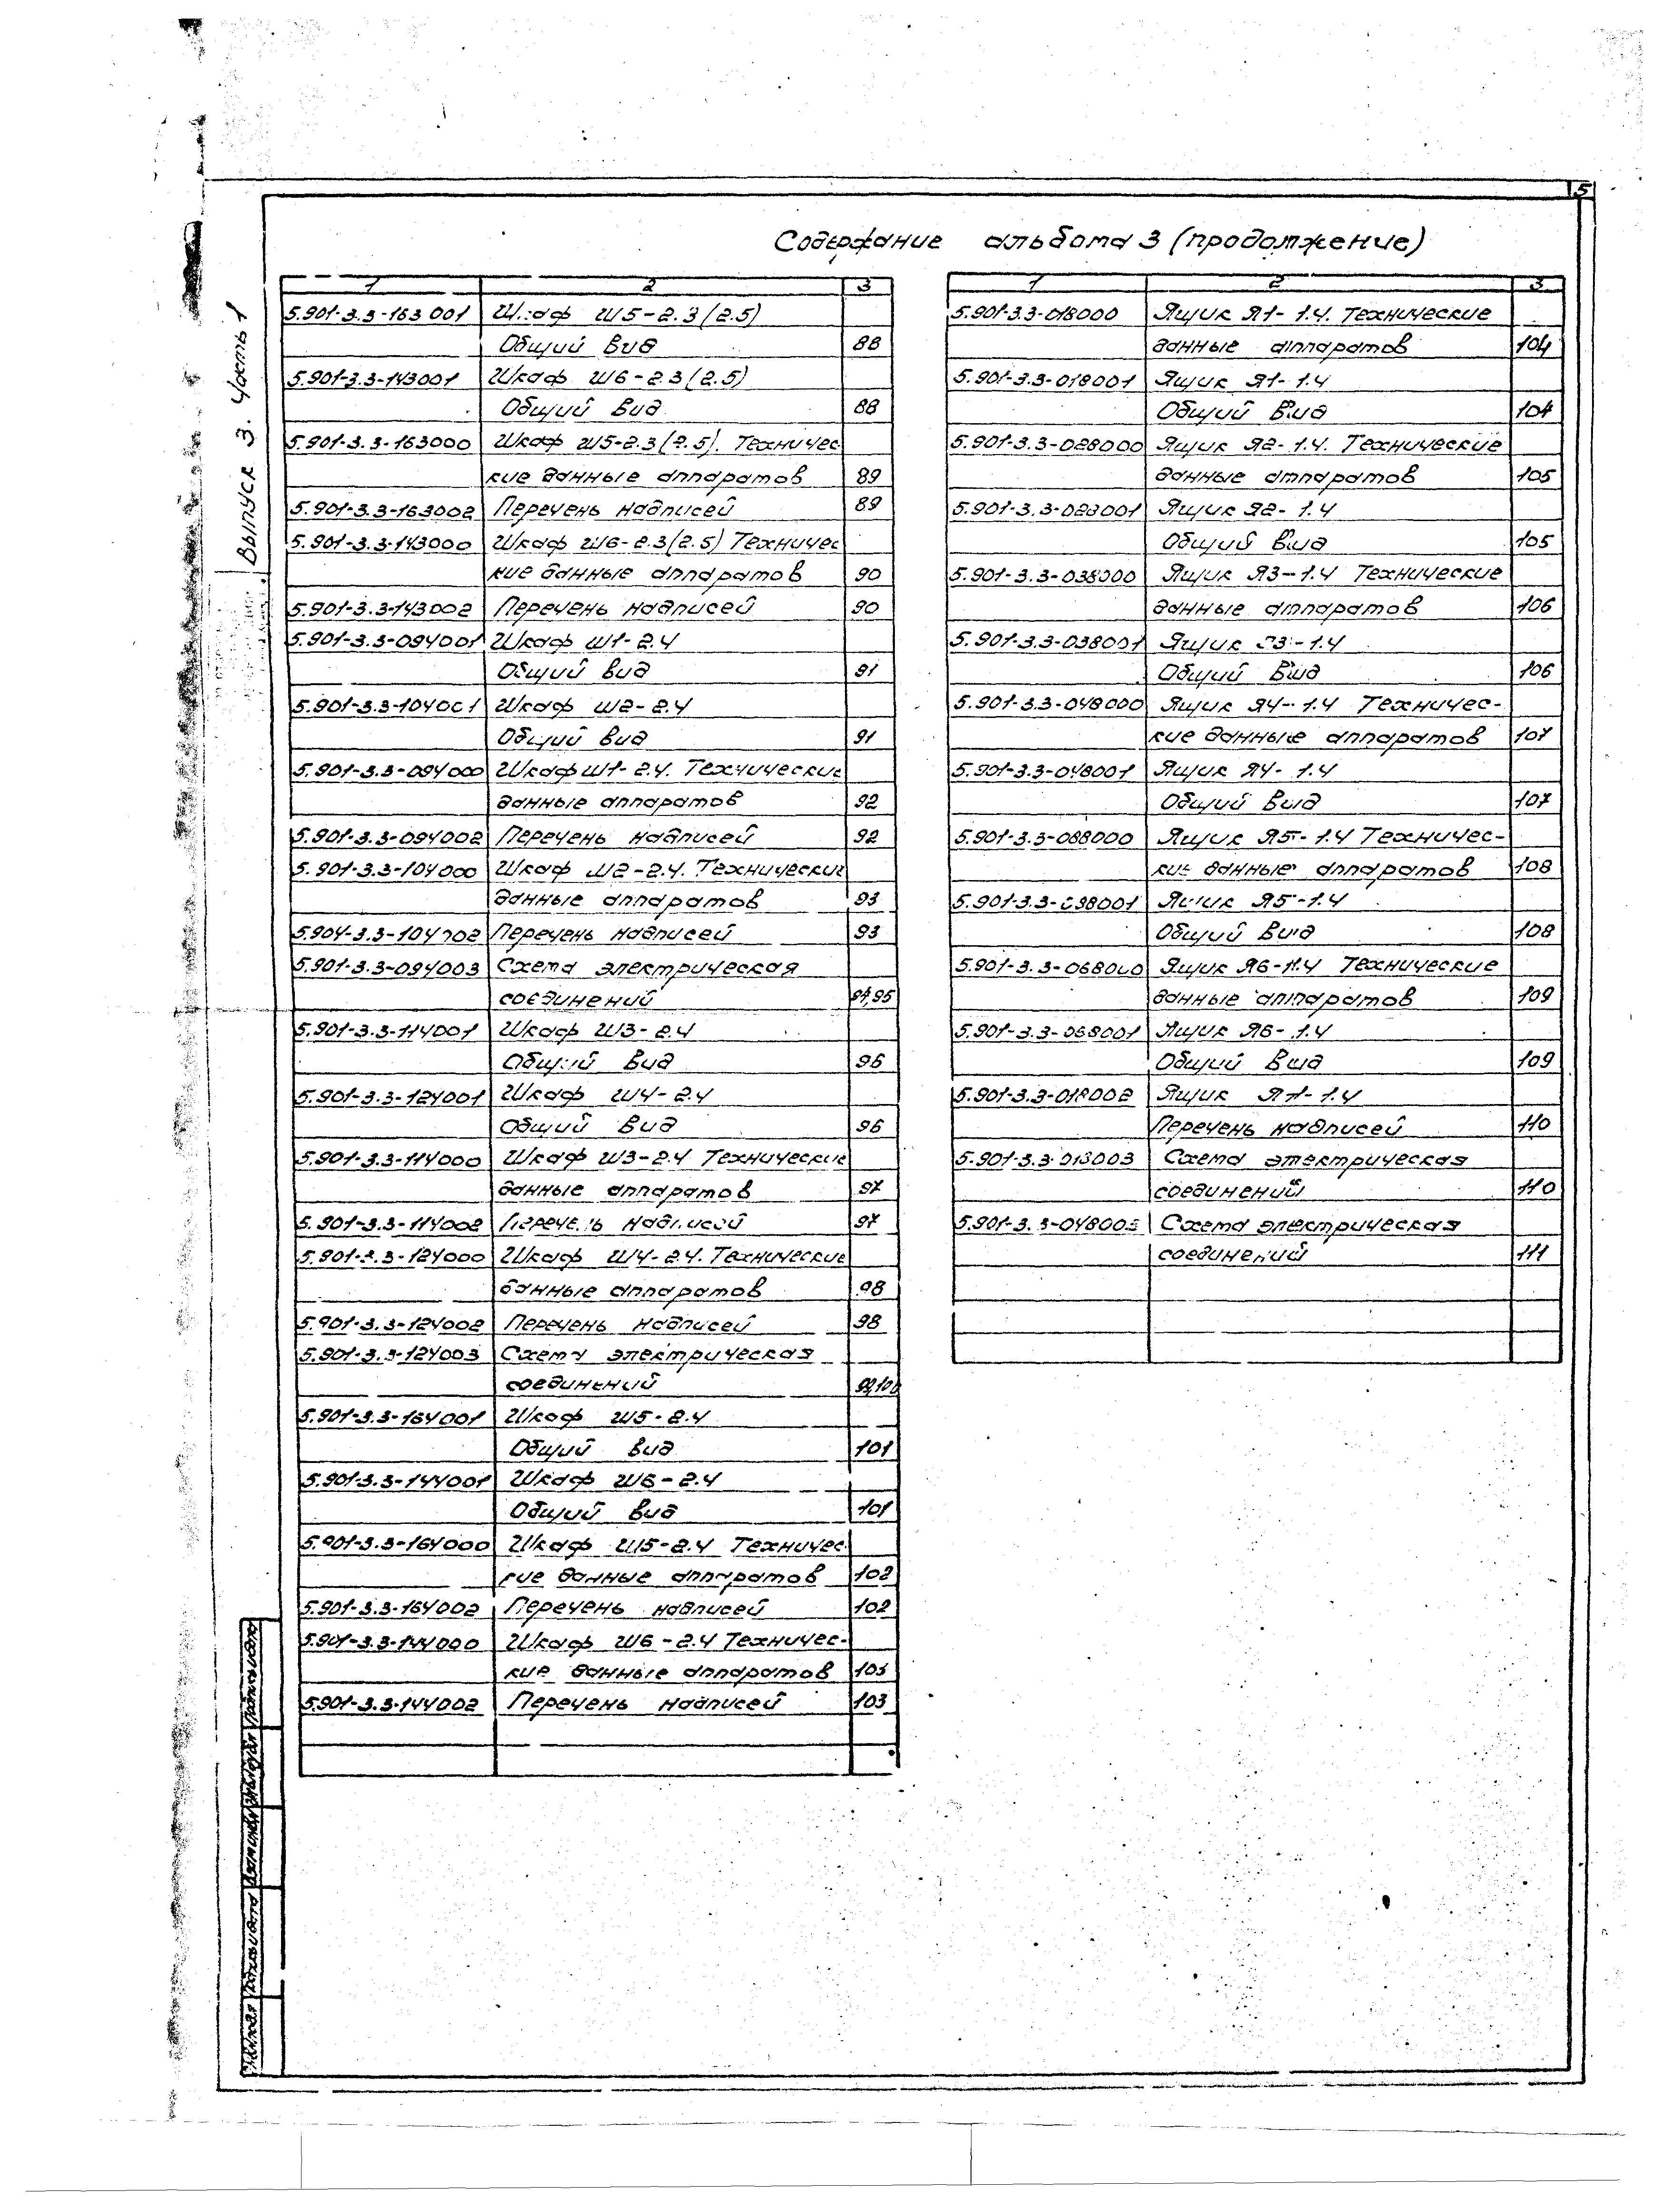 5
Содержание альбома 3 (продолжение)
Выпуск 3. Часть 1
1 2 3
5.901-3.3-163001 Шкаф Ш5-2.3(2.5)
Общий вид 88
5.901-3.3-143001 Шкаф Ш6-2.3(2.5)
Общий вид 88
5.901-3.3-163000 Шкаф Ш5-2.3(2.5). Техничес
кие данные аппаратов 89
5.901-3.3-163002 Перечень надписей 89
5.901-3.3-143000 Шкаф Ш6-2.3(2.5) Техничес
кие данные аппаратов 90
5.901-3.3-143002 Перечень надписей 90
5.901-3.3-094001 Шкаф Ш1-2.4
Общий вид 91
5.901-3.3-104001 Шкаф Ш2-2.4
Общий вид 91
5.901-3.3-094000 Шкаф Ш1-2.4. Технические
данные аппаратов 92
5.901-3.3-094002 Перечень надписей 92
5.901-3.3-104000 Шкаф Ш2-2.4. Технические
данные аппаратов 93
5.904-3.3-104002 Перечень надписей 93
5.901-3.3-094003 Схема электрическая
соединений 94,95
5.901-3.3-114001 Шкаф Ш3-2.4
Общий вид 96
5.901-3.3-124001 Шкаф Ш4-2.4
Общий вид 96
5.901-3.3-114000 Шкаф Ш3-2.4 Технические
данные аппаратов 97
5.901-3.3-114002 Перечень надписей 97
5.901-3.3-124000 Шкаф Ш4-2.4. Технические
данные аппаратов 98
5.901-3.3-124002 Перечень надписей 98
5.901-3.3-124003 Схема электрическая
соединений 99,100
5.901-3.3-164001 Шкаф Ш5-2.4
Общий вид 101
5.901-3.3-144001 Шкаф Ш6-2.4
Общий вид 101
5.901-3.3-164000 Шкаф Ш5-2.4 Техничес
кие данные аппаратов 102
5.901-3.3-164002 Перечень надписей 102
5.901-3.3-144000 Шкаф Ш6-2.4 Техничес-
кие данные аппаратов 103
5.901-3.3-144002 Перечень надписей 103
1 2 3
5.901-3.3-018000 Ящик Я1-1.4. Технические
данные аппаратов 104
5.901-3.3-018001 Ящик Я1-1.4
Общий вид 104
5.901-3.3-028000 Ящик Я2-1.4. Технические
данные аппаратов 105
5.901-3.3-028001 Ящик Я2-1.4
Общий вид 105
5.901-3.3-038000 Ящик Я3-1.4 Технические
данные аппаратов 106
5.901-3.3-038001 Ящик Я3-1.4
Общий вид 106
5.901-3.3-048000 Ящик Я4-1.4 Техничес-
кие данные аппаратов 107
5.901-3.3-048001 Ящик Я4-1.4
Общий вид 107
5.901-3.3-088000 Ящик Я5-1.4 Техничес-
кие данные аппаратов 108
Ящик Я5-1.4
Общий вид 108
5.901-3.3-068000 Ящик Я6-1.4 Технические
данные аппаратов 109
5.901-3.3-068001 Ящик Я6-1.4
Общий вид 109
5.901-3.3-018002 Ящик Я1-1.4
Перечень надписей 110
5.901-3.3-018003 Схема электрическая
соединений 110
5.901-3.3-048003 Схема электрическая
соединений 111